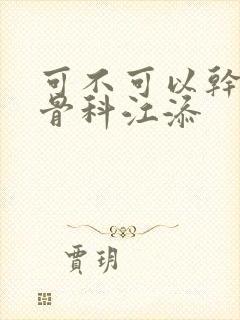 可不可以幹
骨科江添
賈玥